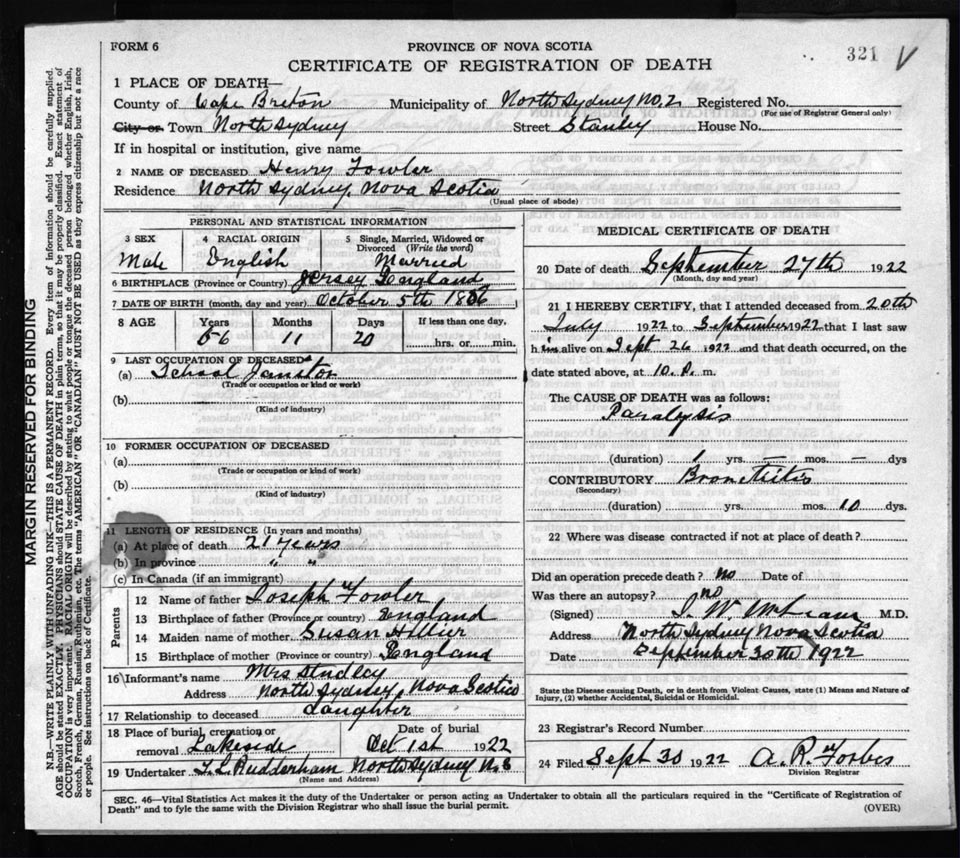 FORM 6
PROVINCE OF NOVA SCOTIA
321 V
CERTIFICATE OF REGISTRATION OF DEATH
1 PLACE OF DEATH—
County of Cape Breton Municipality of North Sydney No. 2 Registered No.
(For use of Registrar General only)
City or Town North Sydney Street Stanley House No.
If in hospital or institution, give name
2 NAME OF DECEASED Henry Fowler
Residence North Sydney Nova Scotia
(Usual place of abode)
PERSONAL AND STATISTICAL INFORMATION
3 SEX 4 RACIAL ORIGIN 5 Single, Married, Widowed or Divorced (Write the word)
Male English Married
6 BIRTHPLACE (Province or Country) Jersey England
7 DATE OF BIRTH (month, day and year) October 5th 1866
8 AGE Years Months Days If less than one day,
56 11 20 hrs. or min.
9 LAST OCCUPATION OF DECEASED
(a) School Janitor
(Trade or occupation or kind or work)
(b)
(Kind of industry)
10 FORMER OCCUPATION OF DECEASED
(a)
(Trade or occupation or kind of work)
(b)
(Kind of industry)
11 LENGTH OF RESIDENCE (In years and months)
(a) At place of death 21 years
(b) In province " "
(c) In Canada (if an immigrant)
Parents
12 Name of father Joseph Fowler
13 Birthplace of father (Province or country) England
14 Maiden name of mother Susan Hillier
15 Birthplace of mother (Province or country) England
16 Informant's name Mrs Studley
Address North Sydney, Nova Scotia
17 Relationship to deceased daughter
18 Place of burial, cremation or removal Lakeside
Date of burial Oct 1st 1922
19 Undertaker T. L. Rudderham North Sydney N. S
(Name and Address)
MEDICAL CERTIFICATE OF DEATH
20 Date of death September 27th 1922
(Month, day and year)
21 I HEREBY CERTIFY, that I attended deceased from 20th
July 1922 to September 1922 that I last saw
him alive on Sept 26 1922 and that death occurred, on the
date stated above, at 10. P. m.
The CAUSE OF DEATH was as follows:
Paralysis
(duration) 1 yrs. — mos. — dys
CONTRIBUTORY Bronchitis
(Secondary)
(duration) yrs. mos. 10 dys.
22 Where was disease contracted if not at place of death?
Did an operation precede death? no Date of
Was there an autopsy? no
(Signed) W. M.D.
Address North Sydney Nova Scotia
Date September 30th 1922
State the Disease causing Death, or in death from Violent Causes, state (1) Means and Nature of Injury, (2) whether Accidental, Suicidal or Homicidal.
23 Registrar's Record Number
24 Filed Sept 30 1922 A. R. Forbes
Division Registrar
SEC. 46—Vital Statistics Act makes it the duty of the Undertaker or person acting as Undertaker to obtain all the particulars required in the "Certificate of Registration of
Death" and to fyle the same with the Division Registrar who shall issue the burial permit. (OVER)
MARGIN RESERVED FOR BINDING
N.B.—WRITE PLAINLY WITH UNFADING INK—THIS IS A PERMANENT RECORD. Every item of information should be carefully supplied.
AGE should be stated EXACTLY. PHYSICIANS should STATE CAUSE OF DEATH in plain terms, so that it may be properly classified. Exact statement of
OCCUPATION is very important. RACIAL ORIGIN will be described by stating to what people or tongue the deceased person belonged whether English, Irish,
Scotch, French, German, Russian, Ruthenian, etc. The terms "AMERICAN" OR "CANADIAN" MUST NOT BE USED as they express citizenship but not a race
or people. See instructions on back of Certificate.